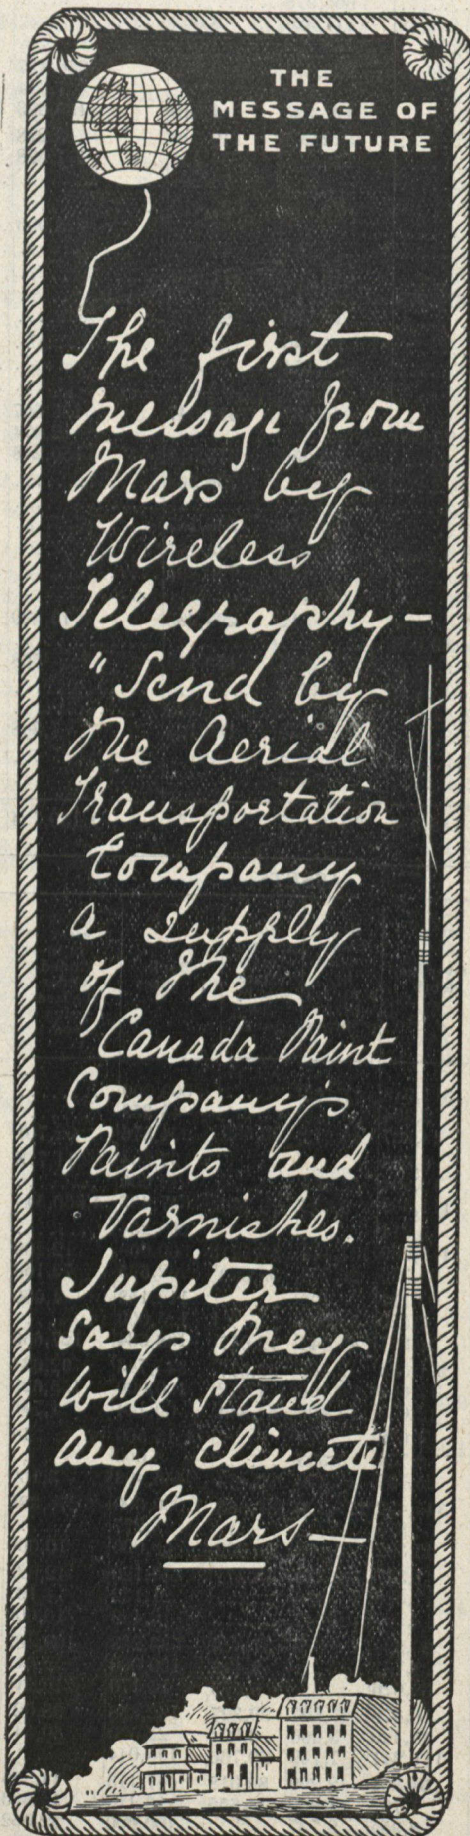 THE
MESSAGE OF
THE FUTURE
The first
message from
Mars by
Wireless
Telegraphy —
"Send by
the Aerial
Transportation
Company
a supply
of the
Canada Paint
Company's
Paints and
Varnishes.
Jupiter
says they
will stand
any climate
Mars —